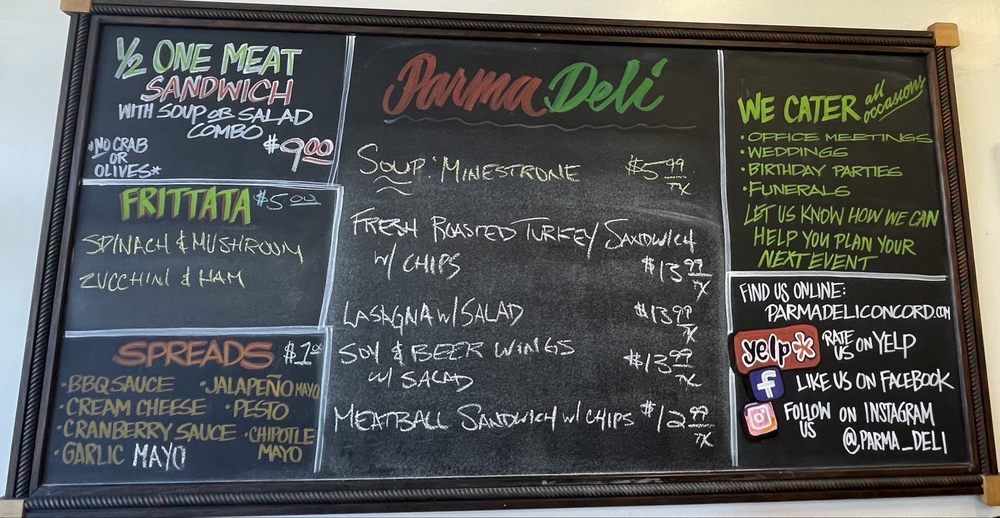 1/2 ONE MEAT
SANDWICH
WITH SOUP OR SALAD
COMBO $9.00
*NO CRAB
OR
OLIVES*
FRITTATA $5.00
SPINACH & MUSHROOM
ZUCCHINI & HAM
SPREADS $1.00
•BBQ SAUCE •JALAPEÑO MAYO
•CREAM CHEESE •PESTO
•CRANBERRY SAUCE •CHIPOTLE
MAYO
•GARLIC MAYO
Parma Deli
SOUP: MINESTRONE $5.99
TX
FRESH ROASTED TURKEY SANDWICH
W/ CHIPS $13.99
TX
LASAGNA W/ SALAD $13.99
TX
SOY & BEER WINGS $13.99
W/ SALAD TX
MEATBALL SANDWICH W/ CHIPS $12.99
TX
WE CATER all occasions
•OFFICE MEETINGS
•WEDDINGS
•BIRTHDAY PARTIES
•FUNERALS
LET US KNOW HOW WE CAN
HELP YOU PLAN YOUR
NEXT EVENT
FIND US ONLINE:
PARMADELICONCORD.COM
yelp RATE US ON YELP
f LIKE US ON FACEBOOK
FOLLOW US ON INSTAGRAM
@PARMA_DELI